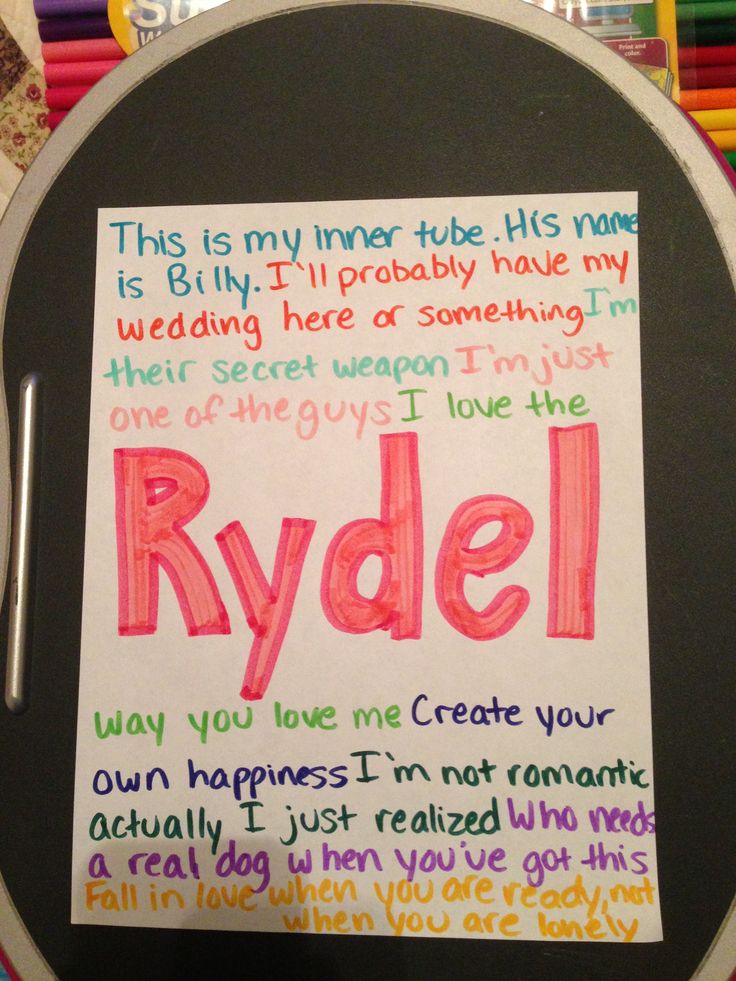 Print and
color.
This is my inner tube. His name
is Billy. I'll probably have my
wedding here or something I'm
their secret weapon I'm just
one of the guys I love the
Rydel
way you love me Create your
own happiness I'm not romantic
actually I just realized Who needs
a real dog when you've got this
Fall in love when you are ready, not
when you are lonely